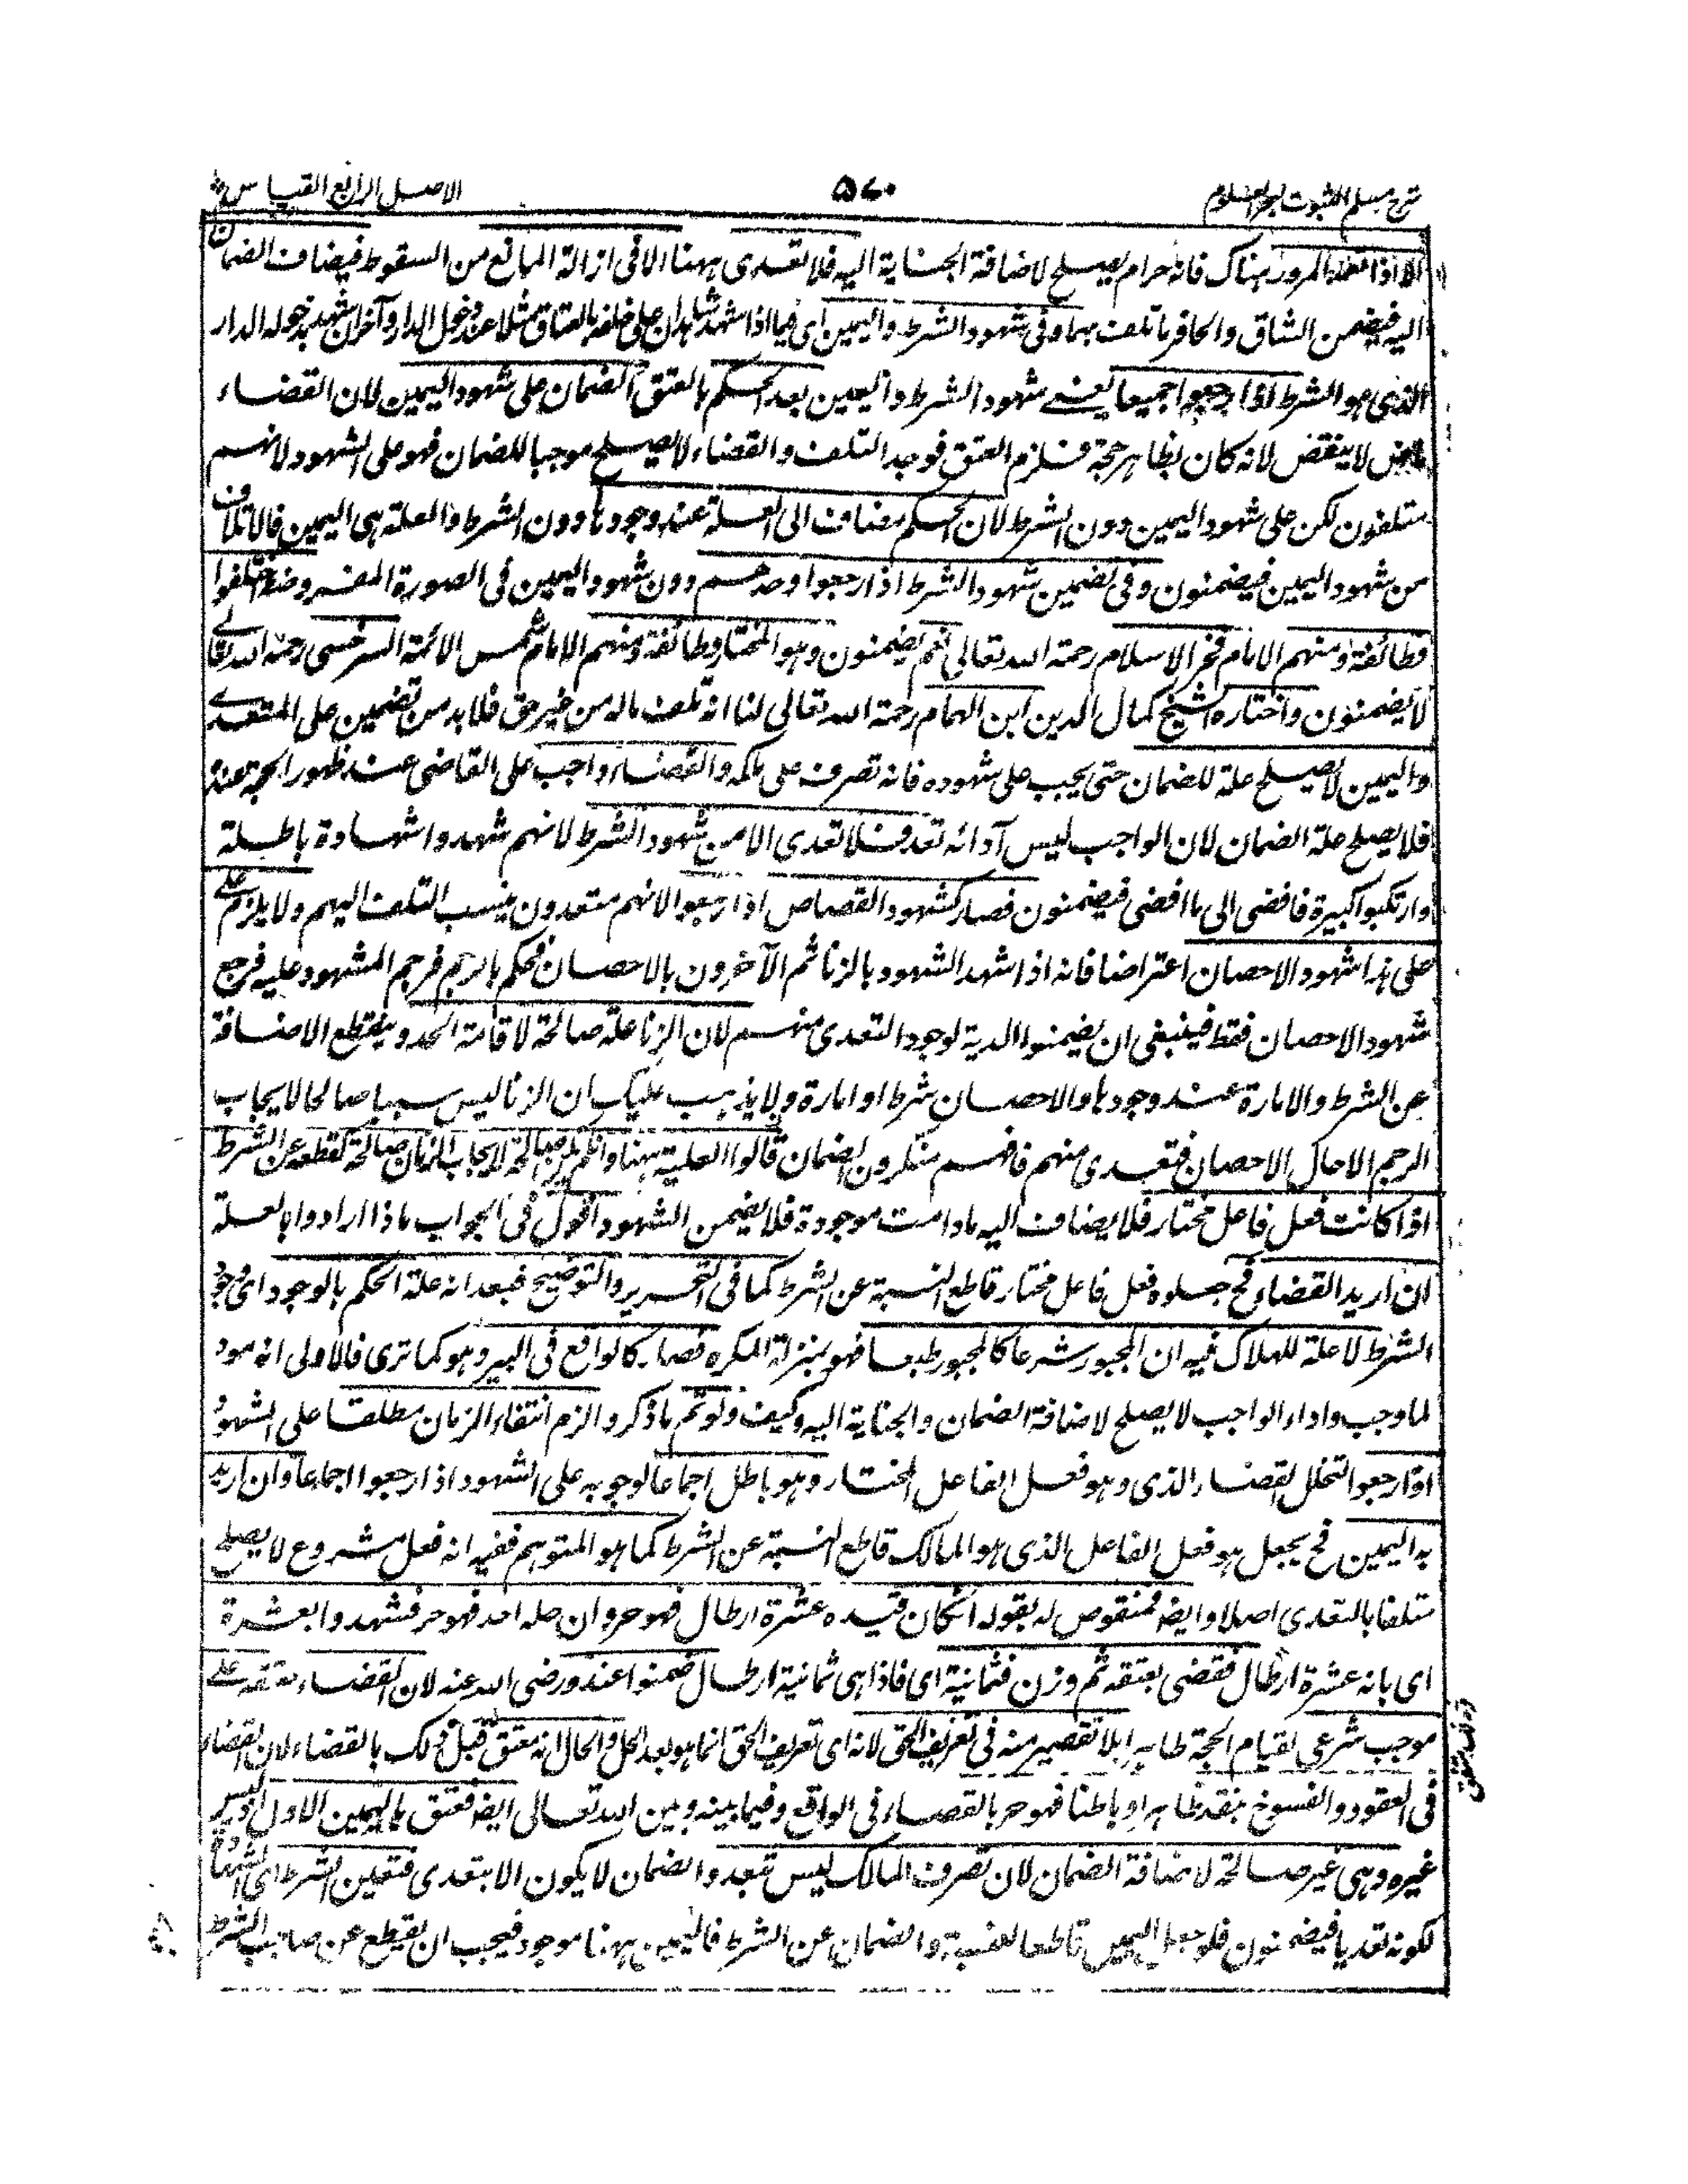 شرح مسلم الثبوت لبحر العلوم
۵۷۰
الاصل الرابع القياس
الا اذا تعمد المرور هناك فانه حرام يصلح لاضافة الجناية اليه فلا تعدى ههنا الا فى ازالة المانع من السقوط فيضاف الضمان
اليه فيضمن الشاق والحافر ما تلف بهما وفى شهود الشرط واليمين اى فيما اذا شهد شاهدان على حلفه بالعتاق مثلا عند دخول الدار وآخران شهد بدخوله الدار
الذى هو الشرط اذا رجعوا جميعا يعنى شهود الشرط واليمين بعد الحكم بالعتق الضمان على شهود اليمين لان القضاء
لا ينقض لانه كان بظاهر حجة فلزم العتق فوجد التلف والقضاء لا يصلح موجبا للضمان فهو على الشهود لانهم
متلفون لكن على شهود اليمين دون الشرط لان الحكم مضاف الى العلة عند وجودها دون الشرط والعلة هى اليمين فالاتلاف
من شهود اليمين فيضمنون وفى تضمين شهود الشرط اذا رجعوا وحدهم دون شهود اليمين فى الصورة المفروضة اختلفوا
فطائفة ومنهم الامام فخر الاسلام رحمة الله تعالى نعم يضمنون وهو المختار وطائفة ومنهم الامام شمس الائمة السرخسى رحمة الله تعالى
لا يضمنون واختاره الشيخ كمال الدين ابن الهمام رحمة الله تعالى لنا انه تلف ماله من غير حق فلا بد من تضمين على المتعدى
واليمين لا يصلح علة للضمان حتى يجب على شهوده فانه تصرف على ملكه والقضاء واجب على القاضى عند ظهور الحجة عنده
فلا يصلح علة الضمان لان الواجب ليس آدائه تعد فلا تعدى الا من شهود الشرط لانهم شهدوا شهادة باطلة
وارتكبوا كبيرة فافضى الى ما افضى فيضمنون فصار كشهود القصاص اذا رجعوا لانهم متعدون ينسب التلف اليهم ولا يلزم على
على هذا شهود الاحصان اعتراضا فانه اذا شهد الشهود بالزنا ثم الآخرون بالاحصان فحكم بالرجم فرجم المشهود عليه فرجع
شهود الاحصان فقط فينبغى ان يضمنوا الدية لوجود التعدى منهم لان الزنا علة صالحة لاقامة الحد وينقطع الاضافة
عن الشرط والامارة عند وجودها والاحصان شرط او امارة ولا يذهب عليك ان الزنا ليس سببا صالحا لايجاب
الرجم الا حال الاحصان فتعدى منهم فافهم منكرون لضمان قالوا العلية ههنا وان لم يكن صالحة لايجاب الضمان صالحة لقطعه عن الشرط
اذا كانت فعل فاعل مختار فلا يضاف اليه ما دامت موجودة فلا يضمن الشهود اقول فى الجواب ماذا ارادوا بالعلة
ان اريد القضاء فح جعلوه فعل فاعل مختار قاطع النسبة عن الشرط كما فى التحرير والتوضيح فبعد انه علة الحكم بالوجود اى وجود
الشرط لا علة للهلاك فيه ان المجبور شرعا كالمجبور طبعا فهو بمنزلة المكره فصار كالواقع فى البير وهو كما ترى فالاولى انه مود
لما وجب واداء الواجب لا يصلح لاضافة الضمان والجناية اليه وكيف ولو تم ما ذكروا لزم انتفاء الزمان مطلقا على الشهود
اذا رجعوا لتخلل القضاء الذى وهو فعل الفاعل المختار وهو باطل اجماعا لوجوبه على الشهود اذا رجعوا اجماعا وان اريد
به اليمين فح يجعل هو فعل الفاعل الذى هو المالك قاطع النسبة عن الشرط كما هو المتوهم ففيه انه فعل مشروع لا يصلح
متلفا بالتعدى اصلا وايضا فمنقوص له بقوله ان كان قيده عشرة ارطال فهو حر وان حله احد فهو حر فشهدوا بعشرة
اى بانه عشرة ارطال فقضى بعتقه ثم وزن فثمانية اى فاذا هى ثمانية ارطال ضمنوا عنده رضى الله عنه لان القضاء بعتقه على
موجب شرعى لقيام الحجة ظاهرا بلا تقصير منه فى تعريف الحق لانه اى تعريف الحق انما هو بعد الحل والحال انه معتق قبل ذلك بالقضاء لان القضاء
فى العقود والفسوخ ينفذ ظاهرا وباطنا فهو حر بالقضاء فى الواقع وفيما بينه وبين الله تعالى ايضا فعتق باليمين الاول ليس
غيره وهى غير صالحة لاضافة الضمان لان تصرف المالك ليس تبعد والضمان لا يكون الا بتعدى فتعين الشرط اى الشهادة
لكونه تعديا فيضمنون فلو جعل اليمين قاطعا للنسبة والضمان عن الشرط فاليمين ههنا موجود فيجب ان يقطع عن صاحب الشرط